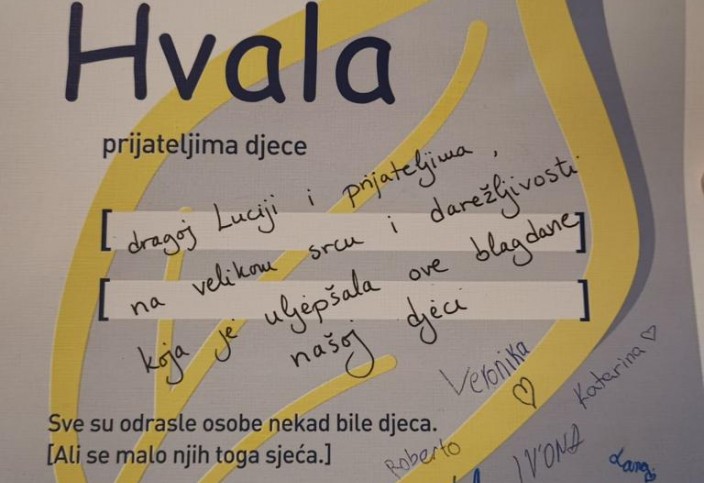 Hvala
prijateljima djece
dragoj Luciji i prijateljima,
na velikom srcu i darežljivosti
koja je uljepšala ove blagdane
našoj djeci
Veronika
Katarina
Sve su odrasle osobe nekad bile djeca.
[Ali se malo njih toga sjeća.]
Roberto
IVONA